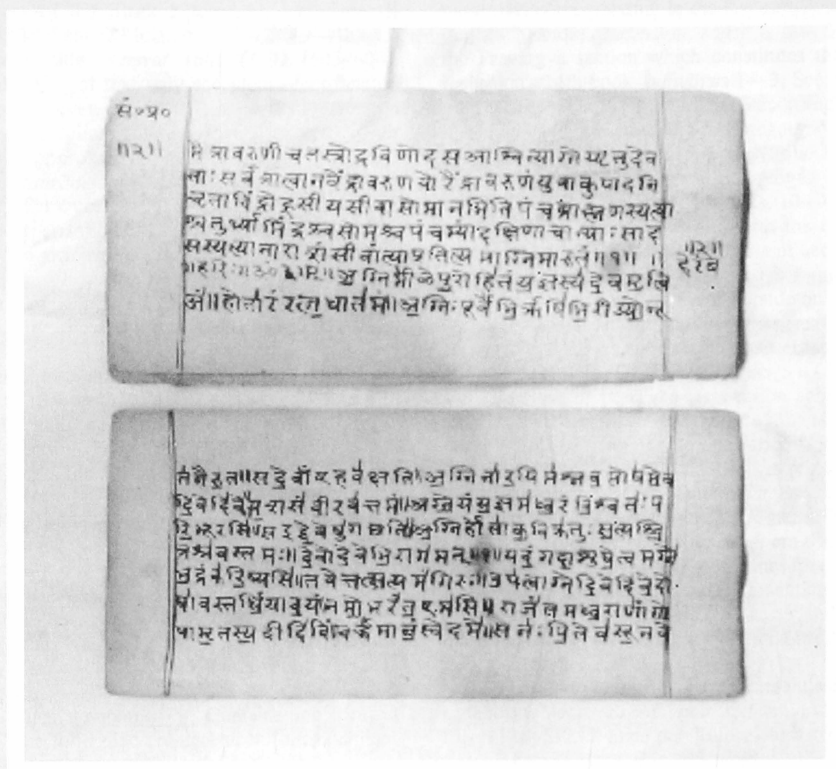 सं॰प्र॰
॥२॥ मैत्रावरुणीचतस्रोद्रविणोदसआश्विन्याग्नेय्यृतुदेव
ताः सर्वत्रालानवैंद्रावरुणयोरैंद्रावरुणंयुवाकुपादनि
श्चतुर्थ्यामिंद्रश्चसोमश्चपंचम्यांदक्षिणाचान्याः साद
सस्यत्यानाराशंसीवांत्याप्रतित्यमाग्निमारुतं॥१॥ ॥
॥२॥
॥हरिः॥ॐ॥ अ॒ग्निमी॑ळेपु॒रोहि॑तंय॒ज्ञस्य॑दे॒वमृ॒त्वि
जं॑॥होता॑रंरत्न॒धात॑मं॥अ॒ग्निःपूर्वे॑भि॒र्ऋषि॑भि॒रीड्यो॒नू
त॑नैरु॒त॥सदे॒वाँएहव॑क्षति॥अ॒ग्निना॑र॒यिम॑श्नव॒त्पोष॑मे॒व
दि॒वेदि॑वे॥य॒शसं॑वी॒रव॑त्तमं॥अग्ने॒यंय॒ज्ञम॑ध्व॒रंवि॒श्वतः॑प
रि॒भूरसि॑॥सइद्दे॒वेषु॑गच्छति॥अ॒ग्निर्होता॑क॒विक्र॑तुःस॒त्यश्चि॒
त्रश्र॑वस्तमः॥दे॒वोदे॒वेभि॒राग॑मत्॥१॥यदं॒गदा॒शुषे॒त्वमग्ने॑
भ॒द्रंक॑रि॒ष्यसि॑॥तवेत्तत्स॒त्यमं॑गिरः॥उप॑त्वाग्नेदि॒वेदि॑वे॒दो
षा॑वस्तर्धि॒याव॒यं॥नमो॒भरं॑त॒एम॑सि॥राजं॑तमध्व॒राणां॑गो॒
पामृ॒तस्य॒दीदि॑विं॥वर्ध॑मानं॒स्वेदमे॑॥सनः॑पि॒तेव॑सू॒नवे